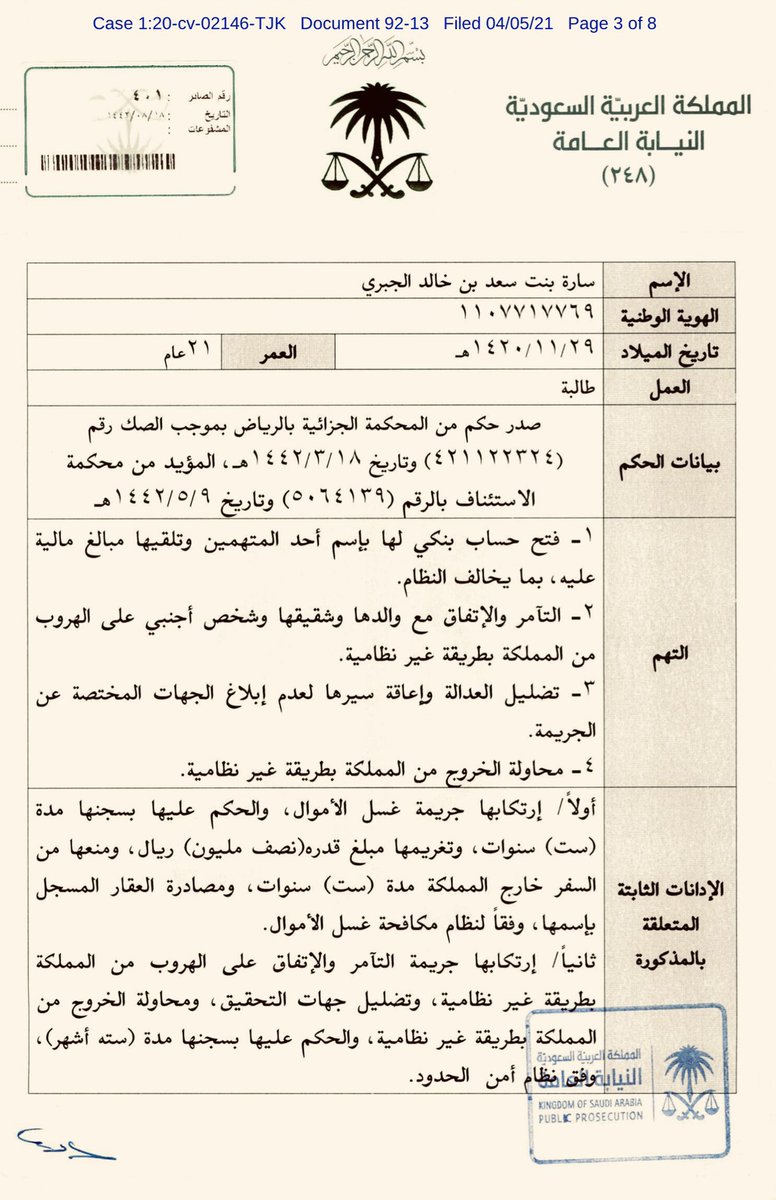 Case 1:20-cv-02146-TJK Document 92-13 Filed 04/05/21 Page 3 of 8
بسم الله الرحمن الرحيم
المملكة العربية السعودية
النيابة العامة
(٢٤٨)
رقم الصادر : ٤٠١
التاريخ : ١٤٤٢/٠٨/١٨
المشفوعات :
الإسم
سارة بنت سعد بن خالد الجبري
الهوية الوطنية
١١٠٧٧١٧٧٦٩
تاريخ الميلاد
١٤٢٠/١١/٢٩هـ
العمر
٢١ عام
العمل
طالبة
بيانات الحكم
صدر حكم من المحكمة الجزائية بالرياض بموجب الصك رقم
(٤٢١١٢٢٣٢٤) وتاريخ ١٤٤٢/٣/١٨هـ، المؤيد من محكمة
الاستئناف بالرقم (٥٠٦٤١٣٩) وتاريخ ١٤٤٢/٥/٩هـ
التهم
١- فتح حساب بنكي لها بإسم أحد المتهمين وتلقيها مبالغ مالية
عليه، بما يخالف النظام.
٢- التآمر والإتفاق مع والدها وشقيقها وشخص أجنبي على الهروب
من المملكة بطريقة غير نظامية.
٣- تضليل العدالة وإعاقة سيرها لعدم إبلاغ الجهات المختصة عن
الجريمة.
٤- محاولة الخروج من المملكة بطريقة غير نظامية.
الإدانات الثابتة
المتعلقة
بالمذكورة
أولاً/ إرتكابها جريمة غسل الأموال، والحكم عليها بسجنها مدة
(ست) سنوات، وتغريمها مبلغ قدره(نصف مليون) ريال، ومنعها من
السفر خارج المملكة مدة (ست) سنوات، ومصادرة العقار المسجل
بإسمها، وفقاً لنظام مكافحة غسل الأموال.
ثانياً/ إرتكابها جريمة التآمر والإتفاق على الهروب من المملكة
بطريقة غير نظامية، وتضليل جهات التحقيق، ومحاولة الخروج من
المملكة بطريقة غير نظامية، والحكم عليها بسجنها مدة (سته أشهر)،
وفق نظام أمن الحدود.
المملكة العربية السعودية
النيابة العامة
KINGDOM OF SAUDI ARABIA
PUBLIC PROSECUTION